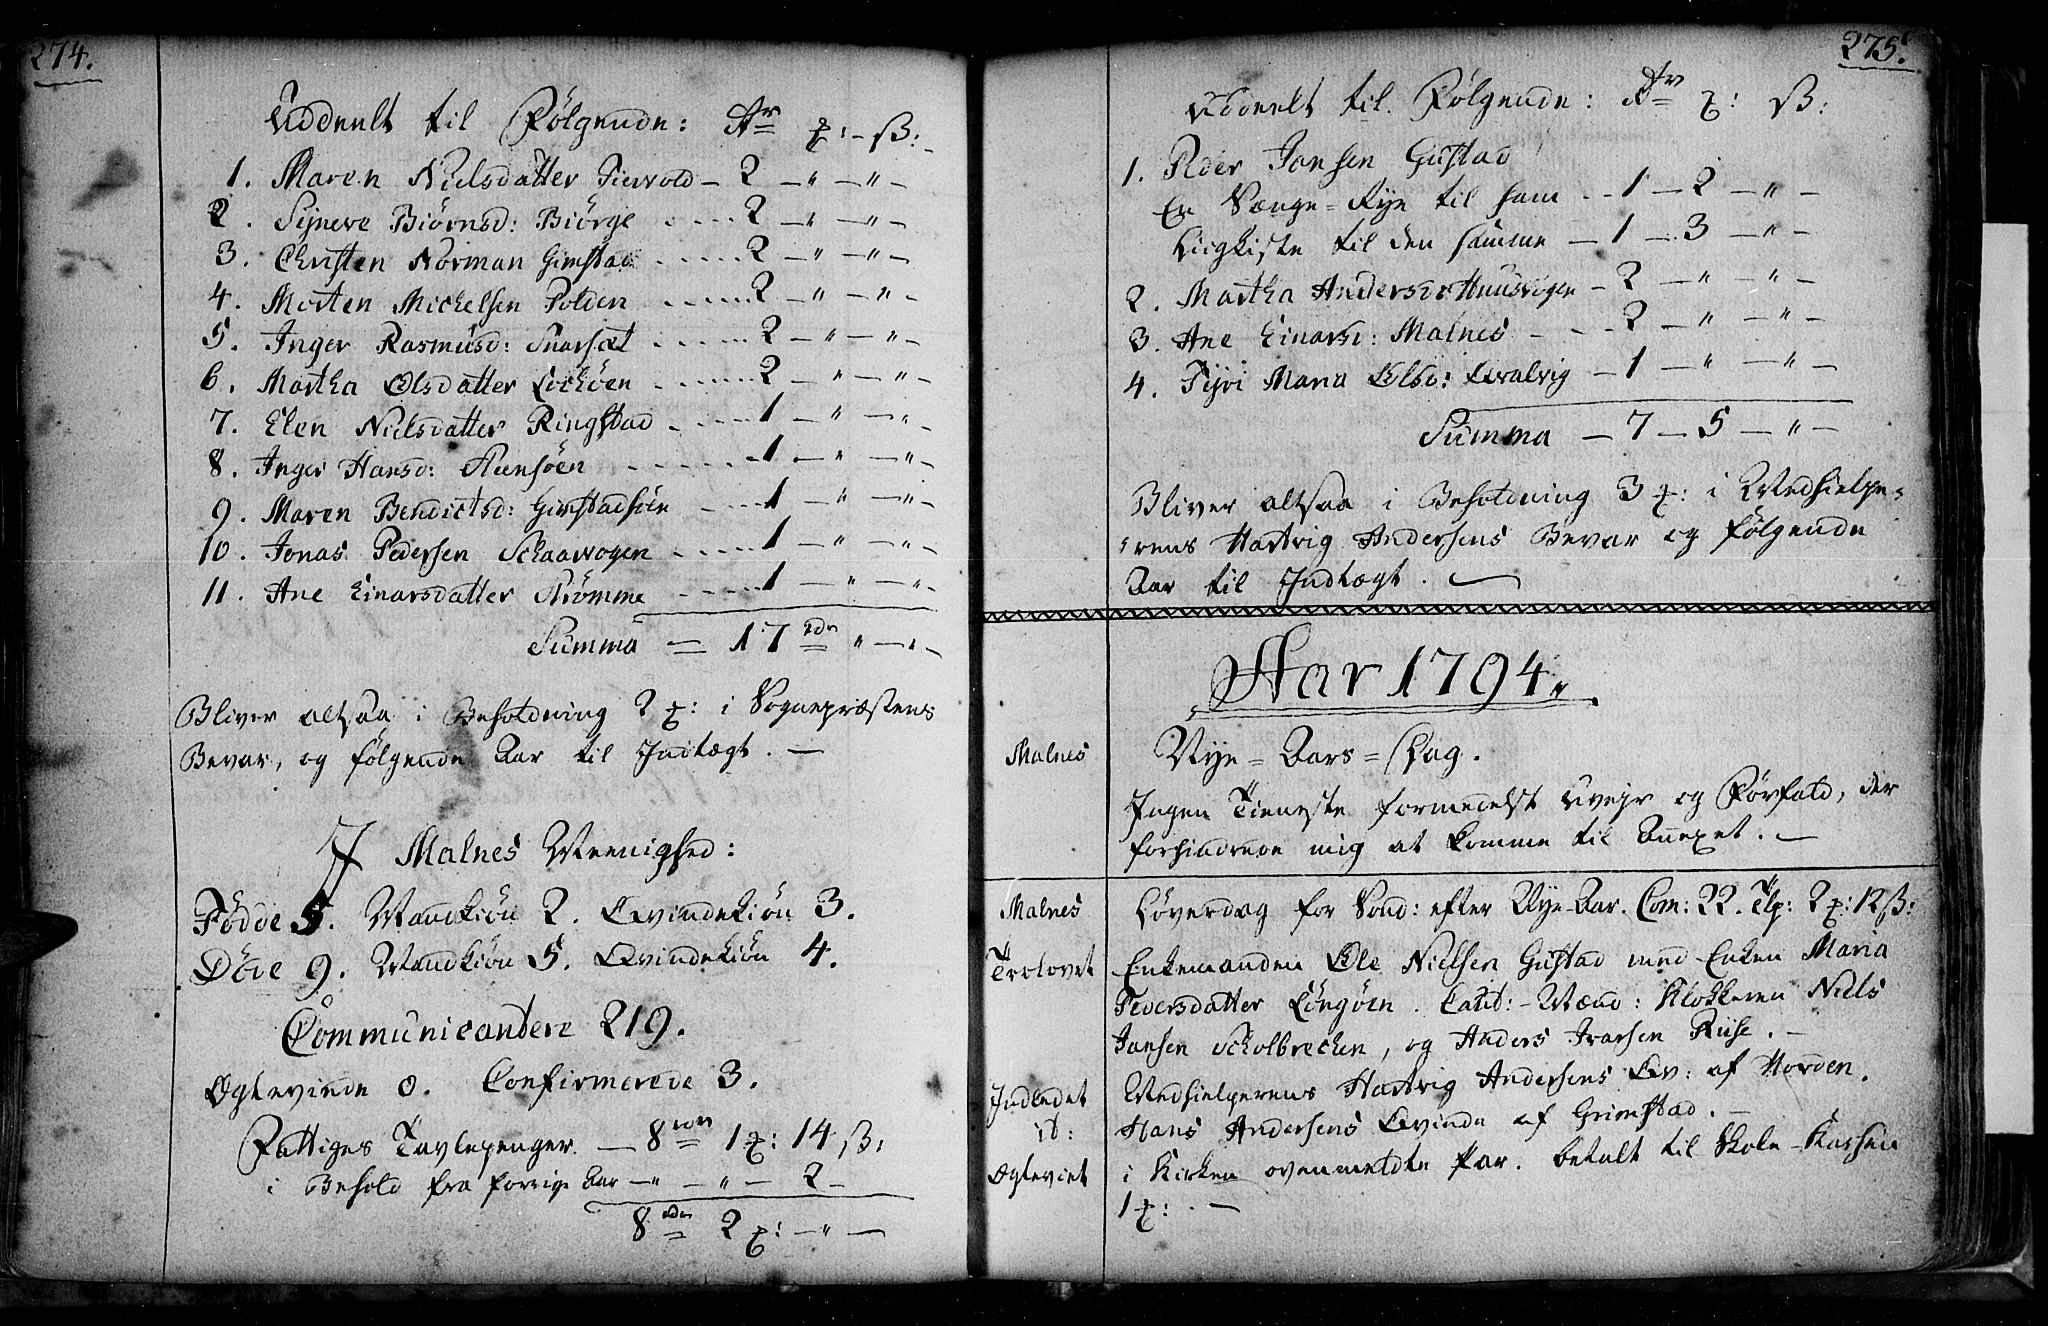 274.
Uddeelt til Følgende: Rdr ꝟ: ß:
1. Maren Nielsdatter Tievold – 2 – " – " –
2. Synneve Biörnsd: Biörge ..... 2 – " – " –
3. Christen Norman Gimstad ...... 2 – " – " –
4. Morten Michelsen Polden ...... 2 – " – " –
5. Inger Rasmusd: Snarsæt ...... 2 – " – " –
6. Martha Olsdatter Lochöen ...... 2 – " – " –
7. Elen Nielsdatter Ringstad ..... 1 – " – " –
8. Inger Hansd: Steensöen ...... 1 – " – " –
9. Maren Bendictsd: Gimstadsöen ..... 1 – " – " –
10. Jonas Pedersen Schaarvogen ..... 1 – " – " –
11. Ane Einarsdatter Strömme ..... 1 – " – " –
Summa = 17 rdr " – " –
Bliver altsaa i Beholdning 2 ꝟ: i Sognepræstens
Bevar, og følgende Aar til Indtægt. –
I Malnes Meenighed:
Födde 5. Mandkiön 2. Qvindekiön 3.
Döde 9. Mandkiön 5. Qvindekiön 4.
Communicantere 219.
Ægteviede 0. Confirmerede 3.
Fattiges Tavlepenger. – 8 rdr 1 ꝟ: 14 ß:
i Behold fra forrige Aar – " – " – 2 –
8 rdr 2 ꝟ: – " –
275.
Uddeelt til Følgende: Rdr ꝟ: ß:
1. Peder Jonsen Gustad
En Sænge-Rye til ham – 1 – 2 – " –
Liigkiste til den samme – 1 – 3 – " –
2. Martha Andersd: Huusvogen – 2 – " – " –
3. Ane Einarsd: Malnes – – – 2 – " – " –
4. Siyvi Maria Olsd: Qvalvig – 1 – " – " –
Summa – 7 – 5 – " –
Bliver altsaa i Beholdning 3 ꝟ: i Medhielpe-
rens Hartvig Andersens Bevar og følgende
Aar til Indtægt. –
Aar 1794.
Malnes Nye-Aars-Dag.
Ingen Tieneste formedelst Uvejr og Förfald, der
forhindrede mig at komme til Annexet. –
Malnes Løverdag for Sönd: efter Nye Aar. Com: 22. Tlp: 2 ꝟ: 12 ß:
Trolovet Enkemanden Ole Nielsen Gustad med Enken Maria
Pedersdatter Löngöen. Caut:-Mænd: Klokkeren Niels
Jansen Scholbrechen, og Anders Ivarsen Riise. –
Indledet Medhielperens Hartvig Andersens Qv: af Horden.
it: Hans Andersens Qvinde af Grimstad. –
Ægteviet i Kirken ovenmeldte Par. betalt til Skole-Kassen
1 ꝟ: . –